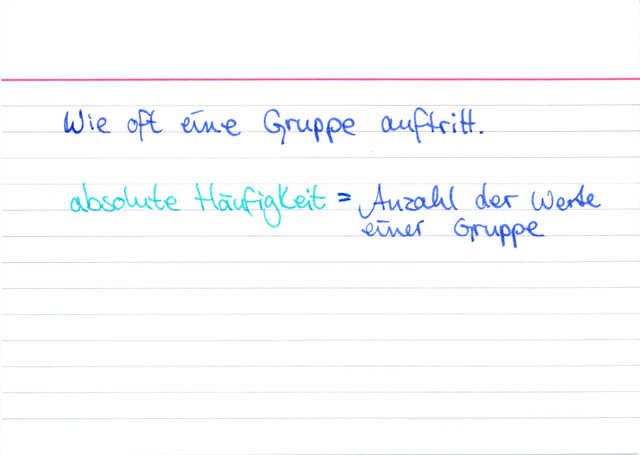 Wie oft eine Gruppe auftritt.
absolute Häufigkeit = Anzahl der Werte
einer Gruppe